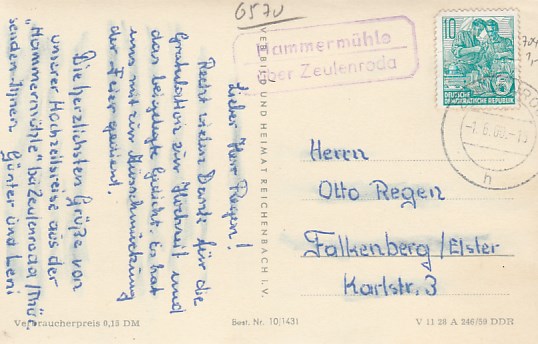 6570
Hammermühle
über Zeulenroda
10
DEUTSCHE
DEMOKRATISCHE REPUBLIK
1.6.60.-15
h
Lieber Herr Regen!
Recht vielen Dank für die
Gratulation zur Hochzeit und
das beigefügte Gedicht. Es hat
uns mit zur Ausschmückung
der Feier gedient.
Die herzlichsten Grüße von
unserer Hochzeitsreise aus der
"Hammermühle" bei Zeulenroda/Thür.
senden Ihnen Günter und Leni
VERLAG BILD UND HEIMAT REICHENBACH I. V.
Herrn
Otto Regen
Falkenberg/Elster
Karlstr. 3
Verbraucherpreis 0,15 DM
Best. Nr. 10/1431
V 11 28 A 246/59 DDR